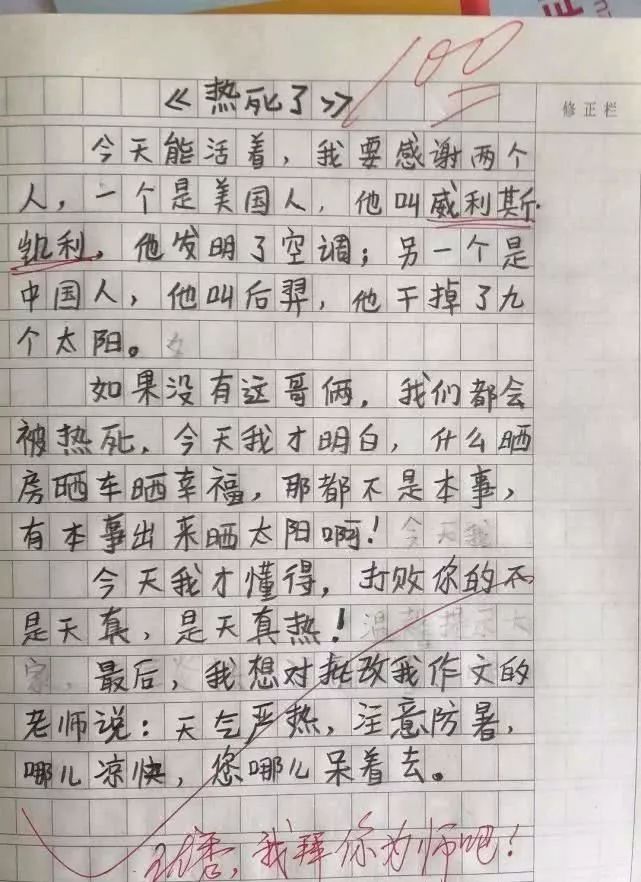 100
修正栏
《热死了》
今天能活着，我要感谢两个
人，一个是美国人，他叫威利斯·
凯利，他发明了空调；另一个是
中国人，他叫后羿，他干掉了九
个太阳。
如果没有这哥俩，我们都会
被热死，今天我才明白，什么晒
房晒车晒幸福，那都不是本事，
有本事出来晒太阳啊！今天我
今天我才懂得，打败你的不
是天真，是天真热！温馨提示大
家，最后，我想对批改我作文的
老师说：天气严热，注意防暑，
哪儿凉快，您哪儿呆着去。
优秀，我拜你为师吧！